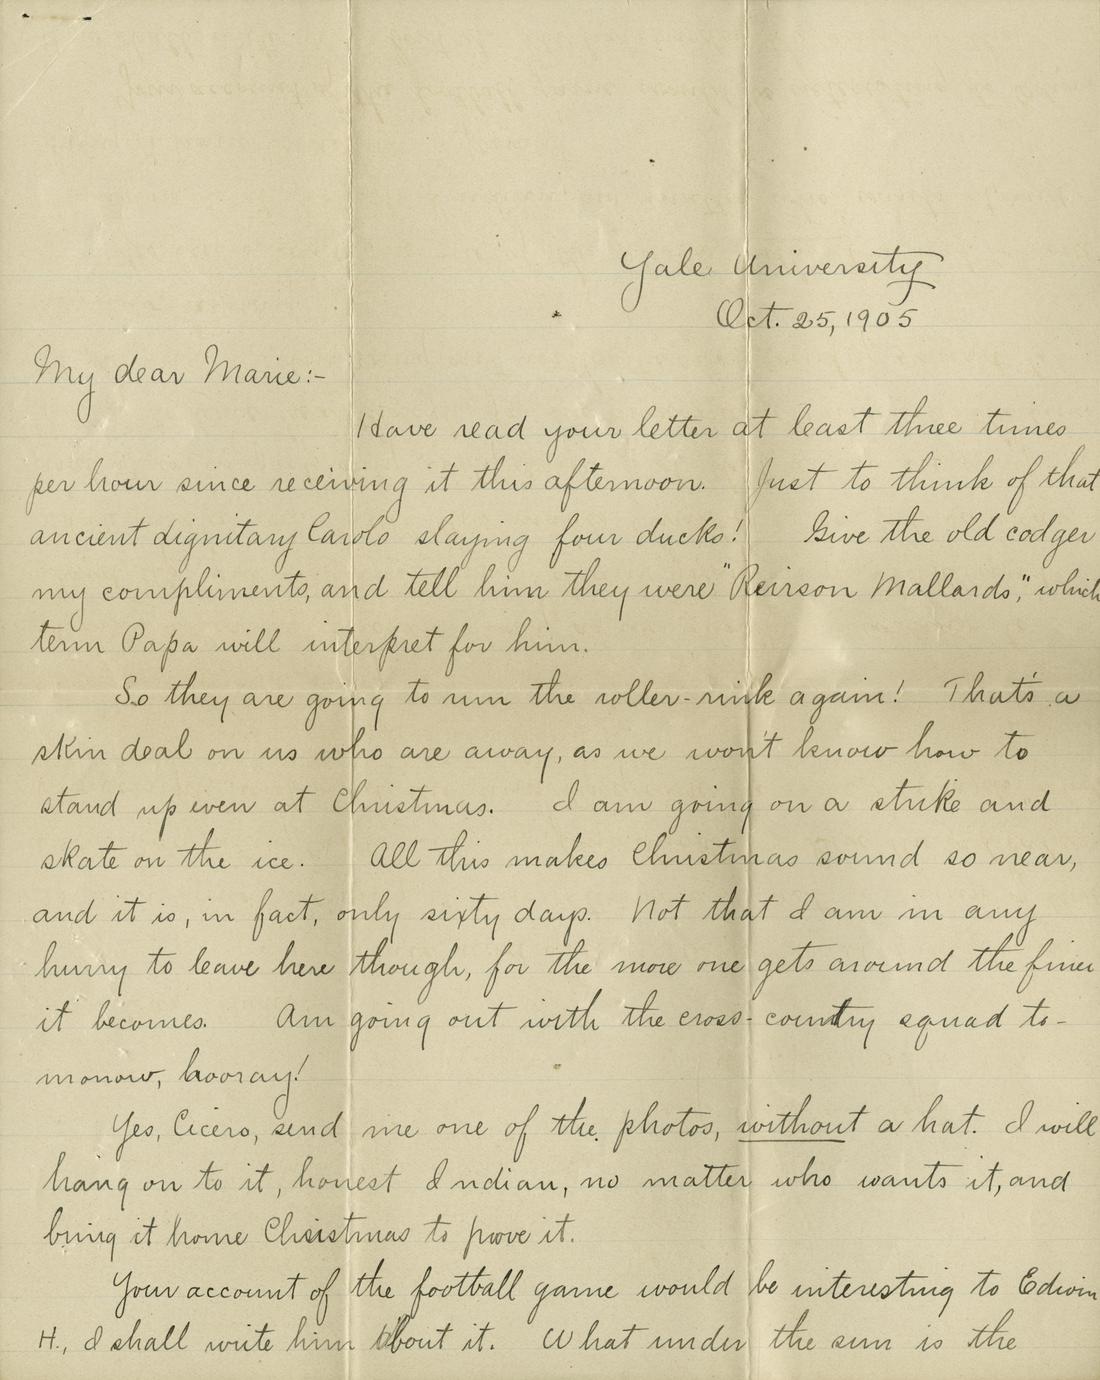 Yale University
Oct. 25, 1905
My dear Marie:-
Have read your letter at least three times
per hour since receiving it this afternoon. Just to think of that
ancient dignitary Carolo slaying four ducks! Give the old codger
my compliments, and tell him they were "Reirson Mallards," which
term Papa will interpret for him.
So they are going to run the roller-rink again! That's a
skin deal on us who are away, as we won't know how to
stand up even at Christmas. I am going on a strike and
skate on the ice. All this makes Christmas sound so near,
and it is, in fact, only sixty days. Not that I am in any
hurry to leave here though, for the more one gets around the finer
it becomes. Am going out with the cross-country squad to-
morrow, hooray!
Yes, Cicero, send me one of the photos, without a hat. I will
hang on to it, honest Indian, no matter who wants it, and
bring it home Christmas to prove it.
Your account of the football game would be interesting to Edwin
H., I shall write him about it. What under the sun is the